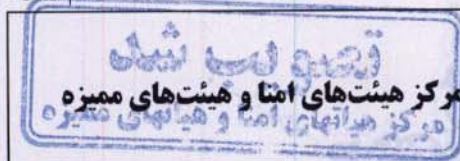 تصویب شد
مرکز هیئت‌های امنا و هیئت‌های ممیزه
مرکز هیاتهای امنا و هیاتهای ممیزه